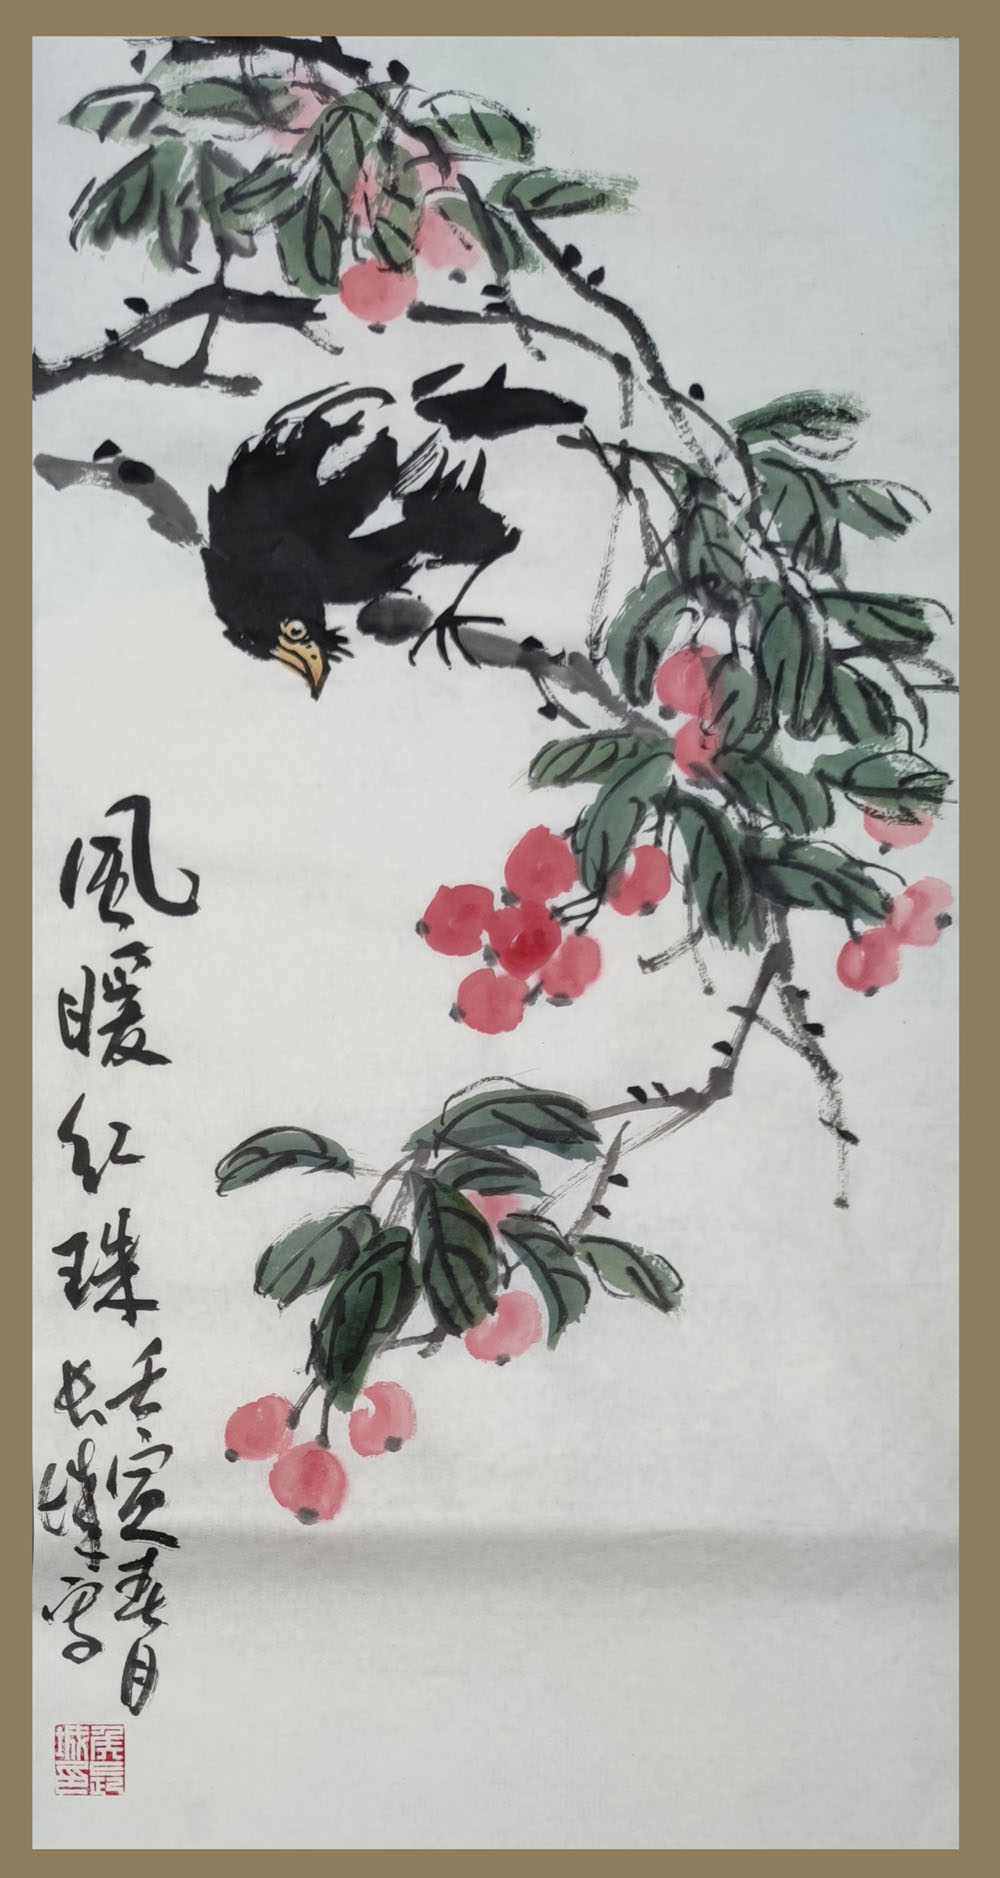 風暖红珠
壬寅春月
长城写